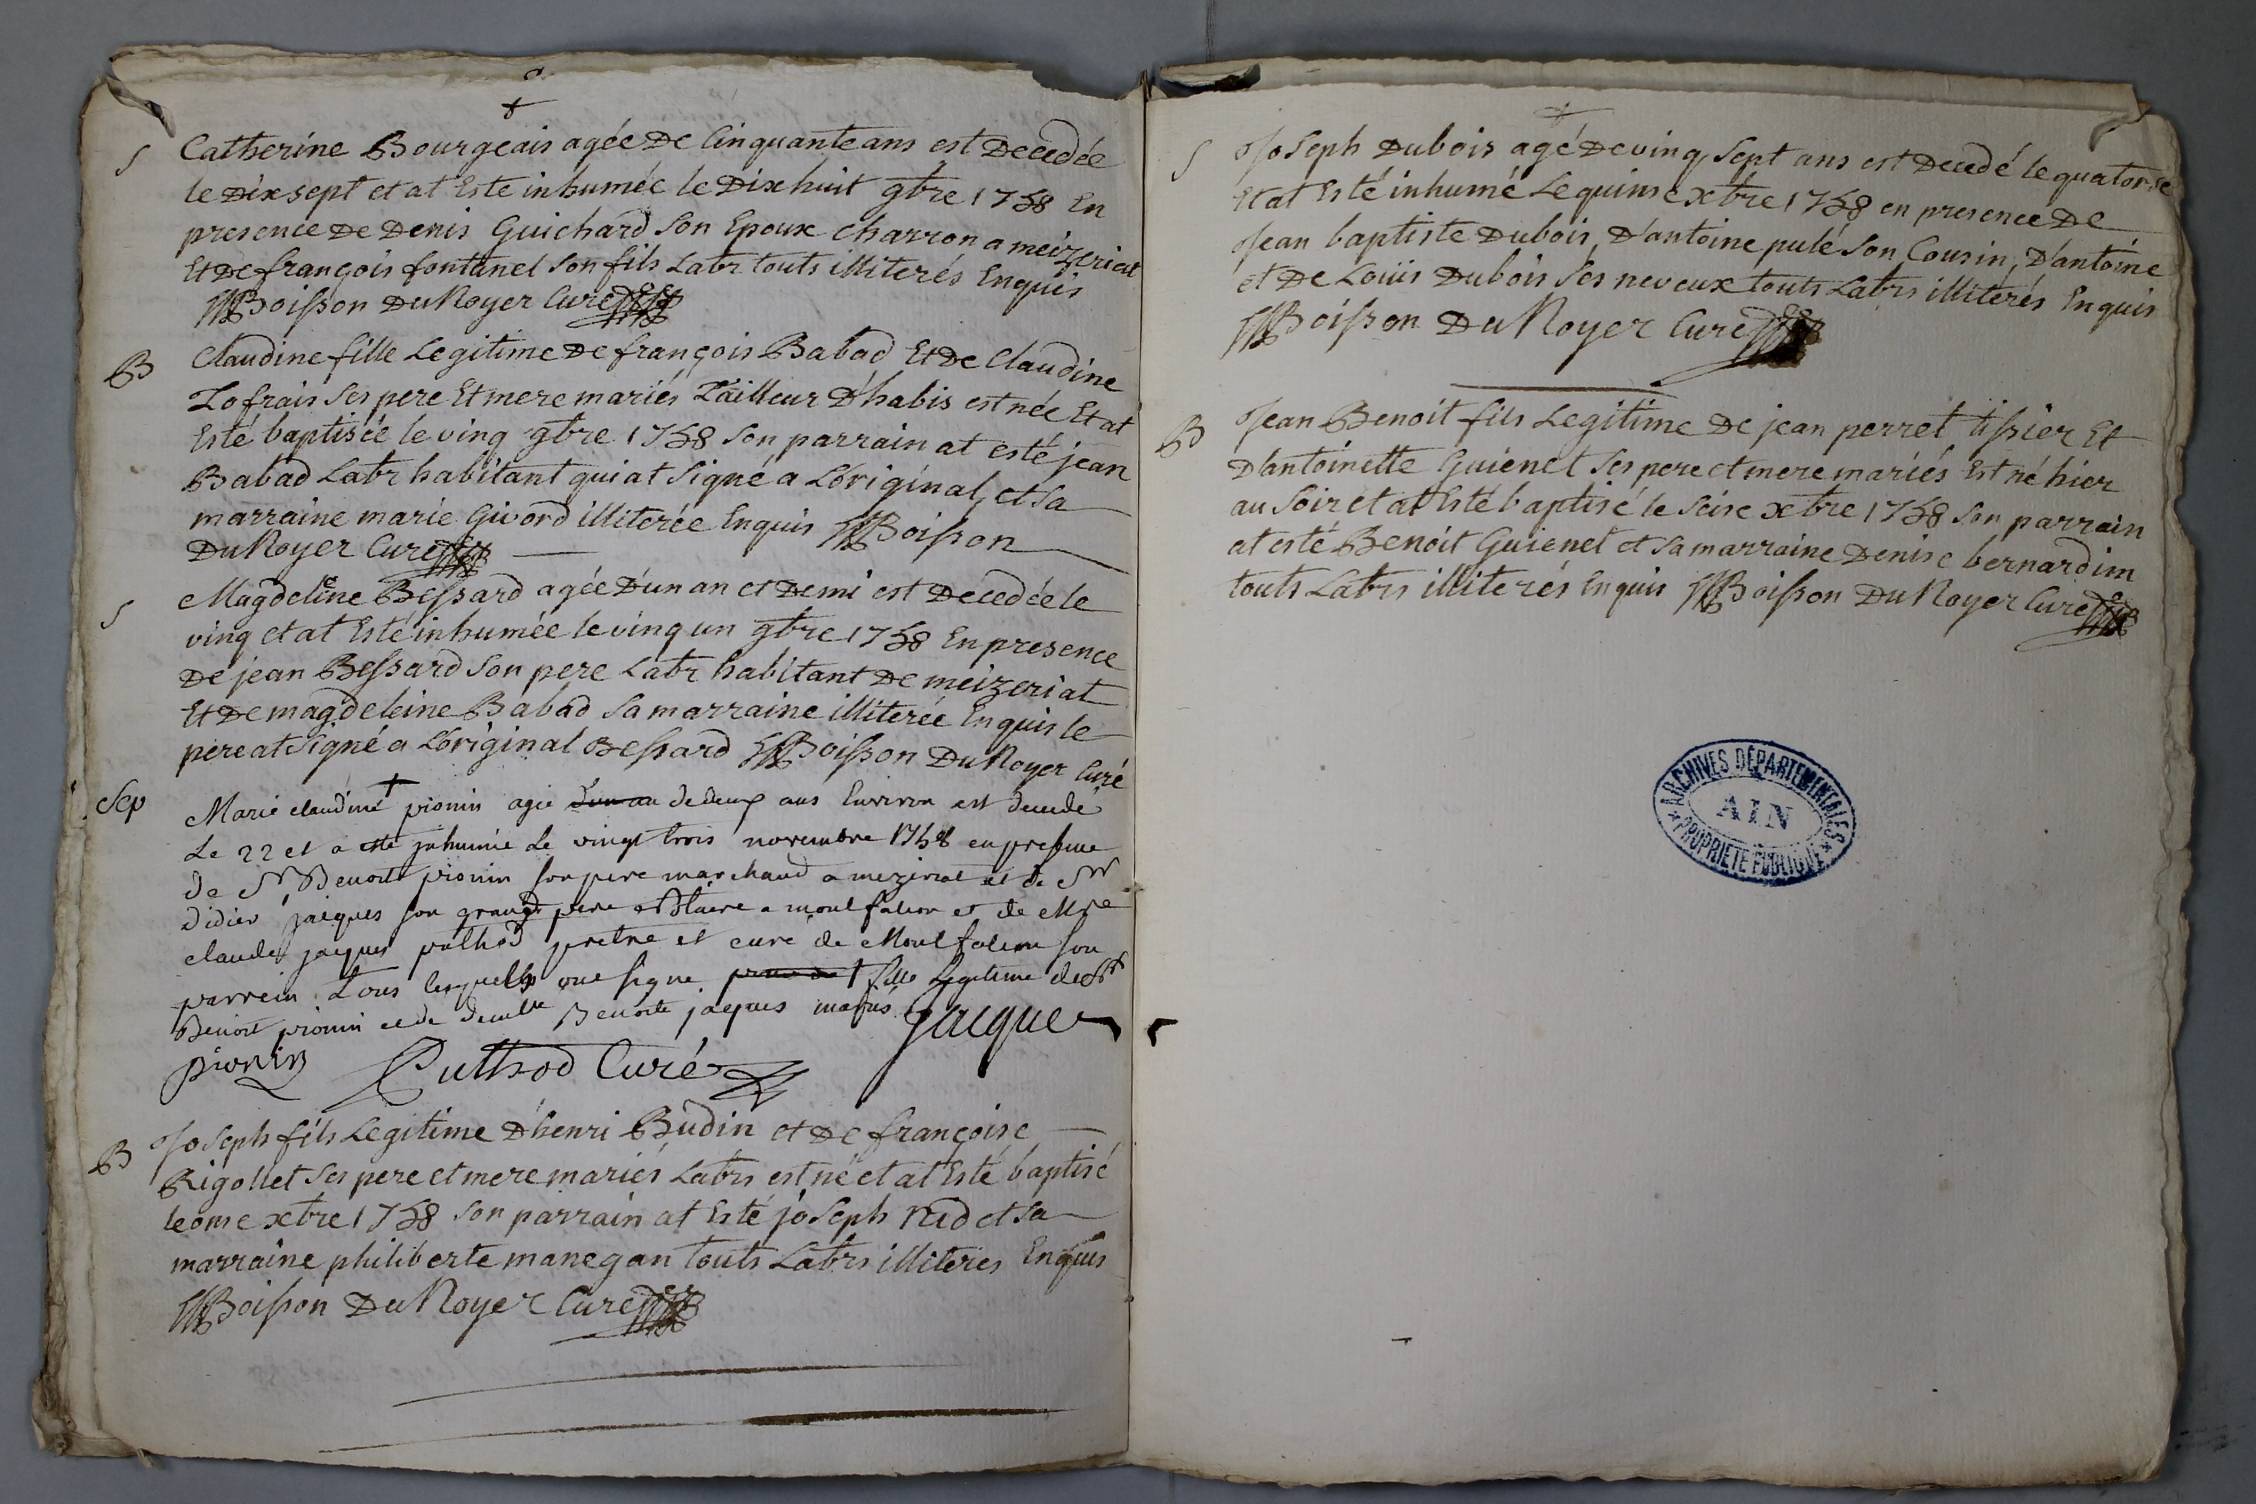 S
Catherine Bourgeais agée De Cinquante ans est Decedée
le Dix sept et at Esté inhumée le Dixhuit 9bre 1758 En
presence De Denis Guichard Son Epoux charron a meizeriat
Et De françois fontanel Son fils Labr touts illiterés Enquis
Boisson Du Noyer Curé
B
Claudine fille Legitime De françois Babad Et De Claudine
Lofrais Ses pere Et mere mariés Tailleur D'habis est née Et at
Esté baptisée le vinq 9bre 1758 Son parrain at esté jean
Babad Labr habitant qui at Signé a L'original, et sa
marraine marie Givord illiterée Enquis Boisson
Du Noyer Curé
S
Magdeleine Bessard agée D'un an et Demi est Decedée le
vinq et at Esté inhumée le vinq un 9bre 1758 En presence
De jean Bessard Son pere Labr habitant De meizeriat
Et De magdeleine Babad Sa marraine illiterée Enquis le
pere at Signé a L'original Bessard Boisson Du Noyer Curé
Sep
Marie claudine + pionin agée d'un an de deux ans Environ est decede
Le 22 et a esté inhumée Le vingt trois novembre 1758 en presence
de Sr Benoit pionin son pere marchand a mezeriat et de Sr
didier jacques son grand pere a montfalcon et de Mre
claude jacques puthod pretre et curé de Montfalcon son
parrein tous lesquels ont signe + fille Legitime de Sr
Benoit pionin et de Benoite jacques mariés Jacques
pionin Puthod Curé
B
Joseph fils Legitime D'henri Budin et De françoise
Rigollet Ses pere et mere mariés Labrs est né et at Esté baptisé
le onse xbre 1758 Son parrain at Esté joseph nid et sa
marraine philiberte manegan touts Labrs illiteres Enquis
Boisson Du Noyer Curé
S
Joseph Dubois agé De vinq Sept ans est Decedé le quatorse
Et at Esté inhumé Le quinse xbre 1758 en presence De
Jean baptiste Dubois, D'antoine pulé Son Cousin, D'antoine
et De Loüis Dubois Ses neveux touts Labrs illiterés Enquis
Boisson Du Noyer Curé
B
Jean Benoit fils Legitime De jean perret tissier Et
D'antoinette Guienet Ses pere et mere mariés Est né hier
au Soir et at Esté baptisé le Seise xbre 1758 Son parrain
at esté Benoit Guienet et sa marraine Denise bernardim
touts Labrs illiterés Enquis Boisson Du Noyer Curé
ARCHIVES DÉPARTEMENTALES
AIN
PROPRIÉTÉ PUBLIQUE